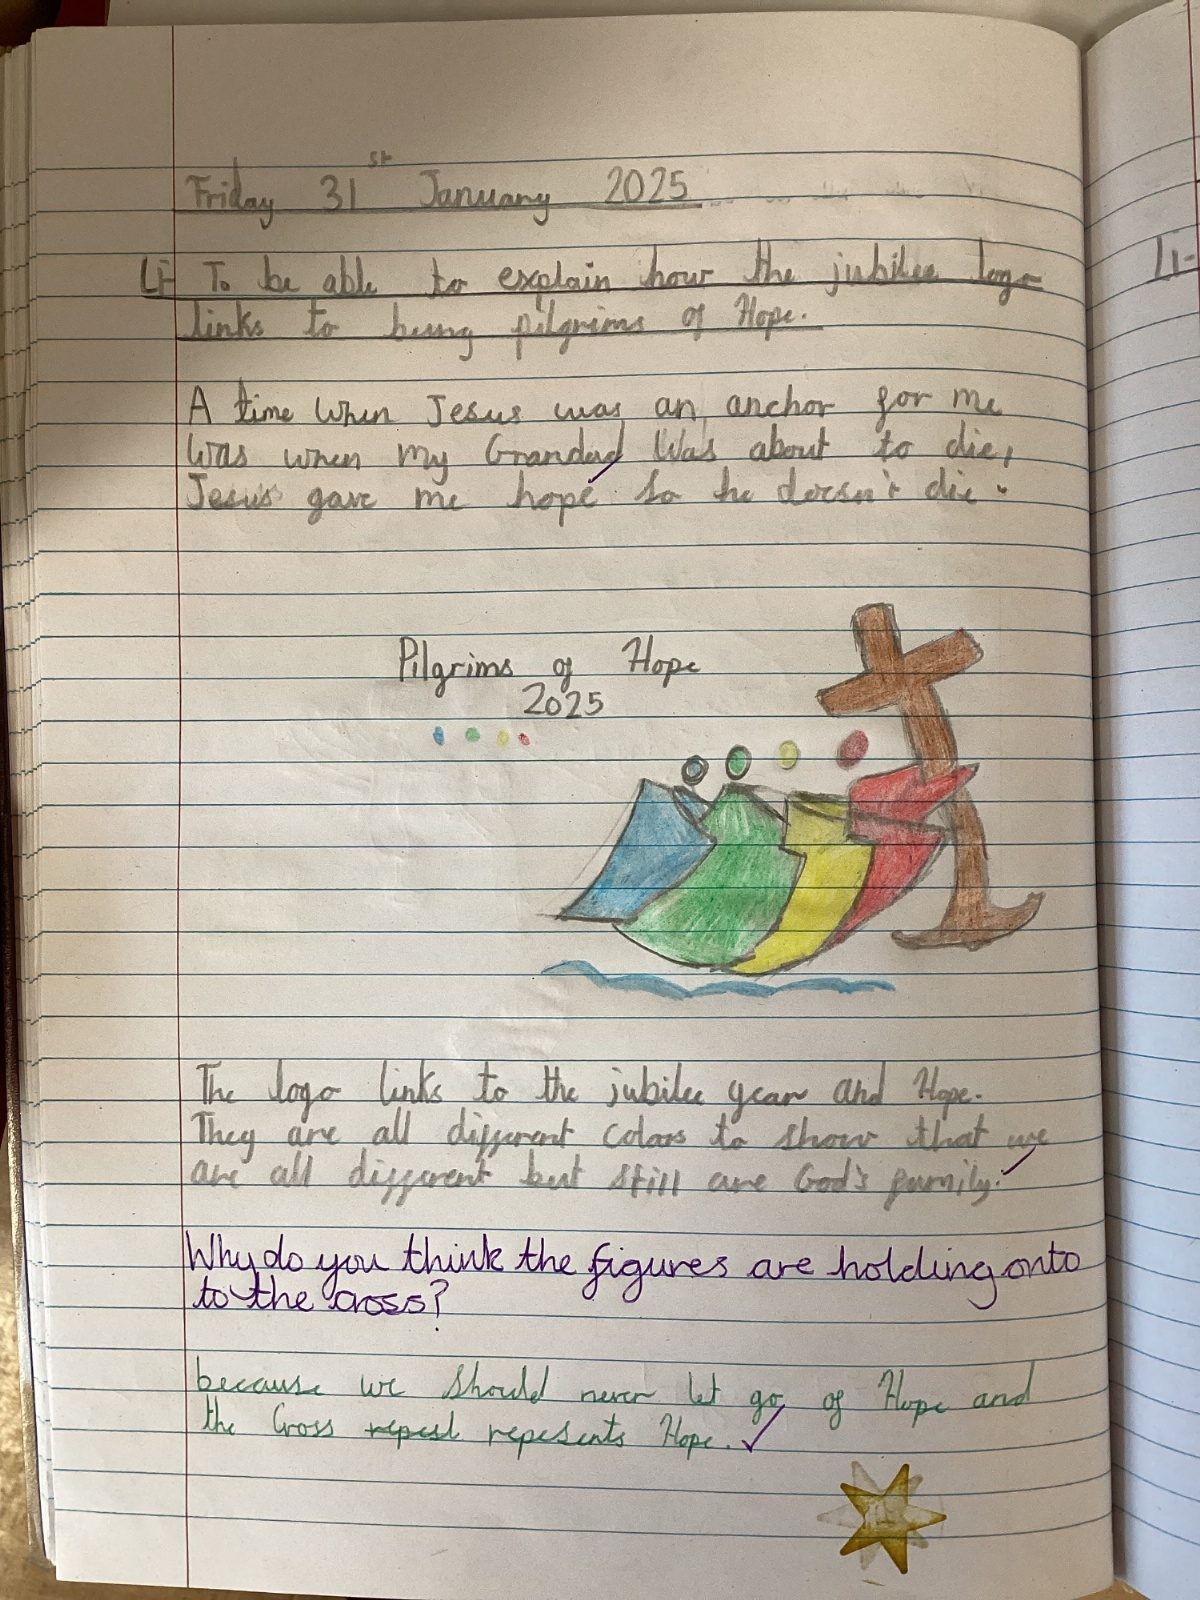 Friday 31st January 2025
LI- To be able to explain how the jubilee logo
links to being pilgrims of Hope.
A time when Jesus was an anchor for me
was when my Grandad was about to die,
Jesus gave me hope so he doesn't die.
Pilgrims of Hope
2025
The logo links to the jubilee year and Hope.
They are all different colors to show that we
are all different but still are God's family.
Why do you think the figures are holding onto
to the cross?
because we should never let go of Hope and
the Cross repest repesents Hope.
LI-